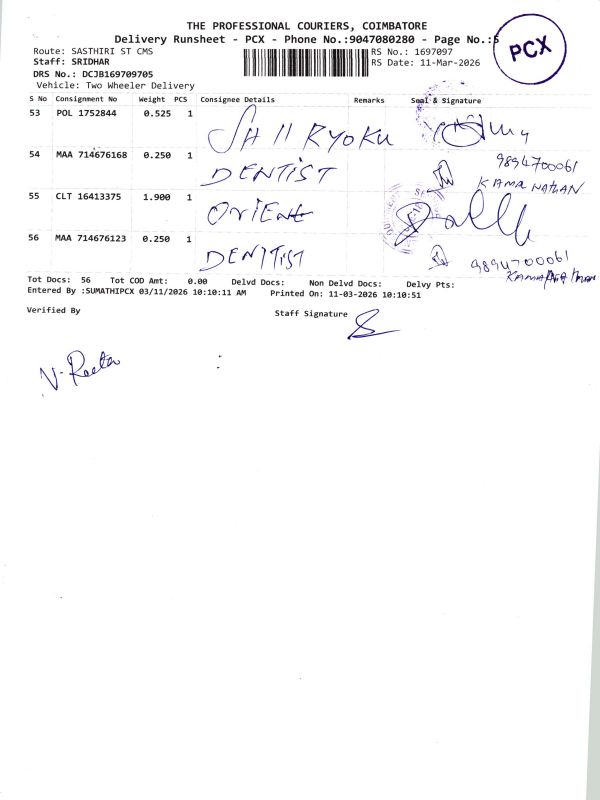 THE PROFESSIONAL COURIERS, COIMBATORE
Delivery Runsheet - PCX - Phone No.:9047080280 - Page No.:5
PCX
Route: SASTHIRI ST CMS
RS No.: 1697097
Staff: SRIDHAR
RS Date: 11-Mar-2026
DRS No.: DCJB169709705
Vehicle: Two Wheeler Delivery
S No Consignment No Weight PCS Consignee Details Remarks Seal & Signature
53 POL 1752844 0.525 1 RYOKU
54 MAA 714676168 0.250 1 DENTIST 9894700061
55 CLT 16413375 1.900 1 ORIENt
56 MAA 714676123 0.250 1 DENTIST 9894700061
Tot Docs: 56 Tot COD Amt: 0.00 Delvd Docs: Non Delvd Docs: Delvy Pts:
Entered By :SUMATHIPCX 03/11/2026 10:10:11 AM Printed On: 11-03-2026 10:10:51
Verified By
Staff Signature